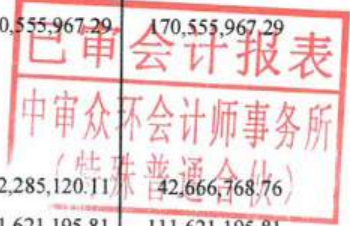 0,555,967.29 170,555,967.29
已审会计报表
中审众环会计师事务所
(特殊普通合伙)
2,285,120.11 42,666,768.76
1,621,195.81 111,621,195.81